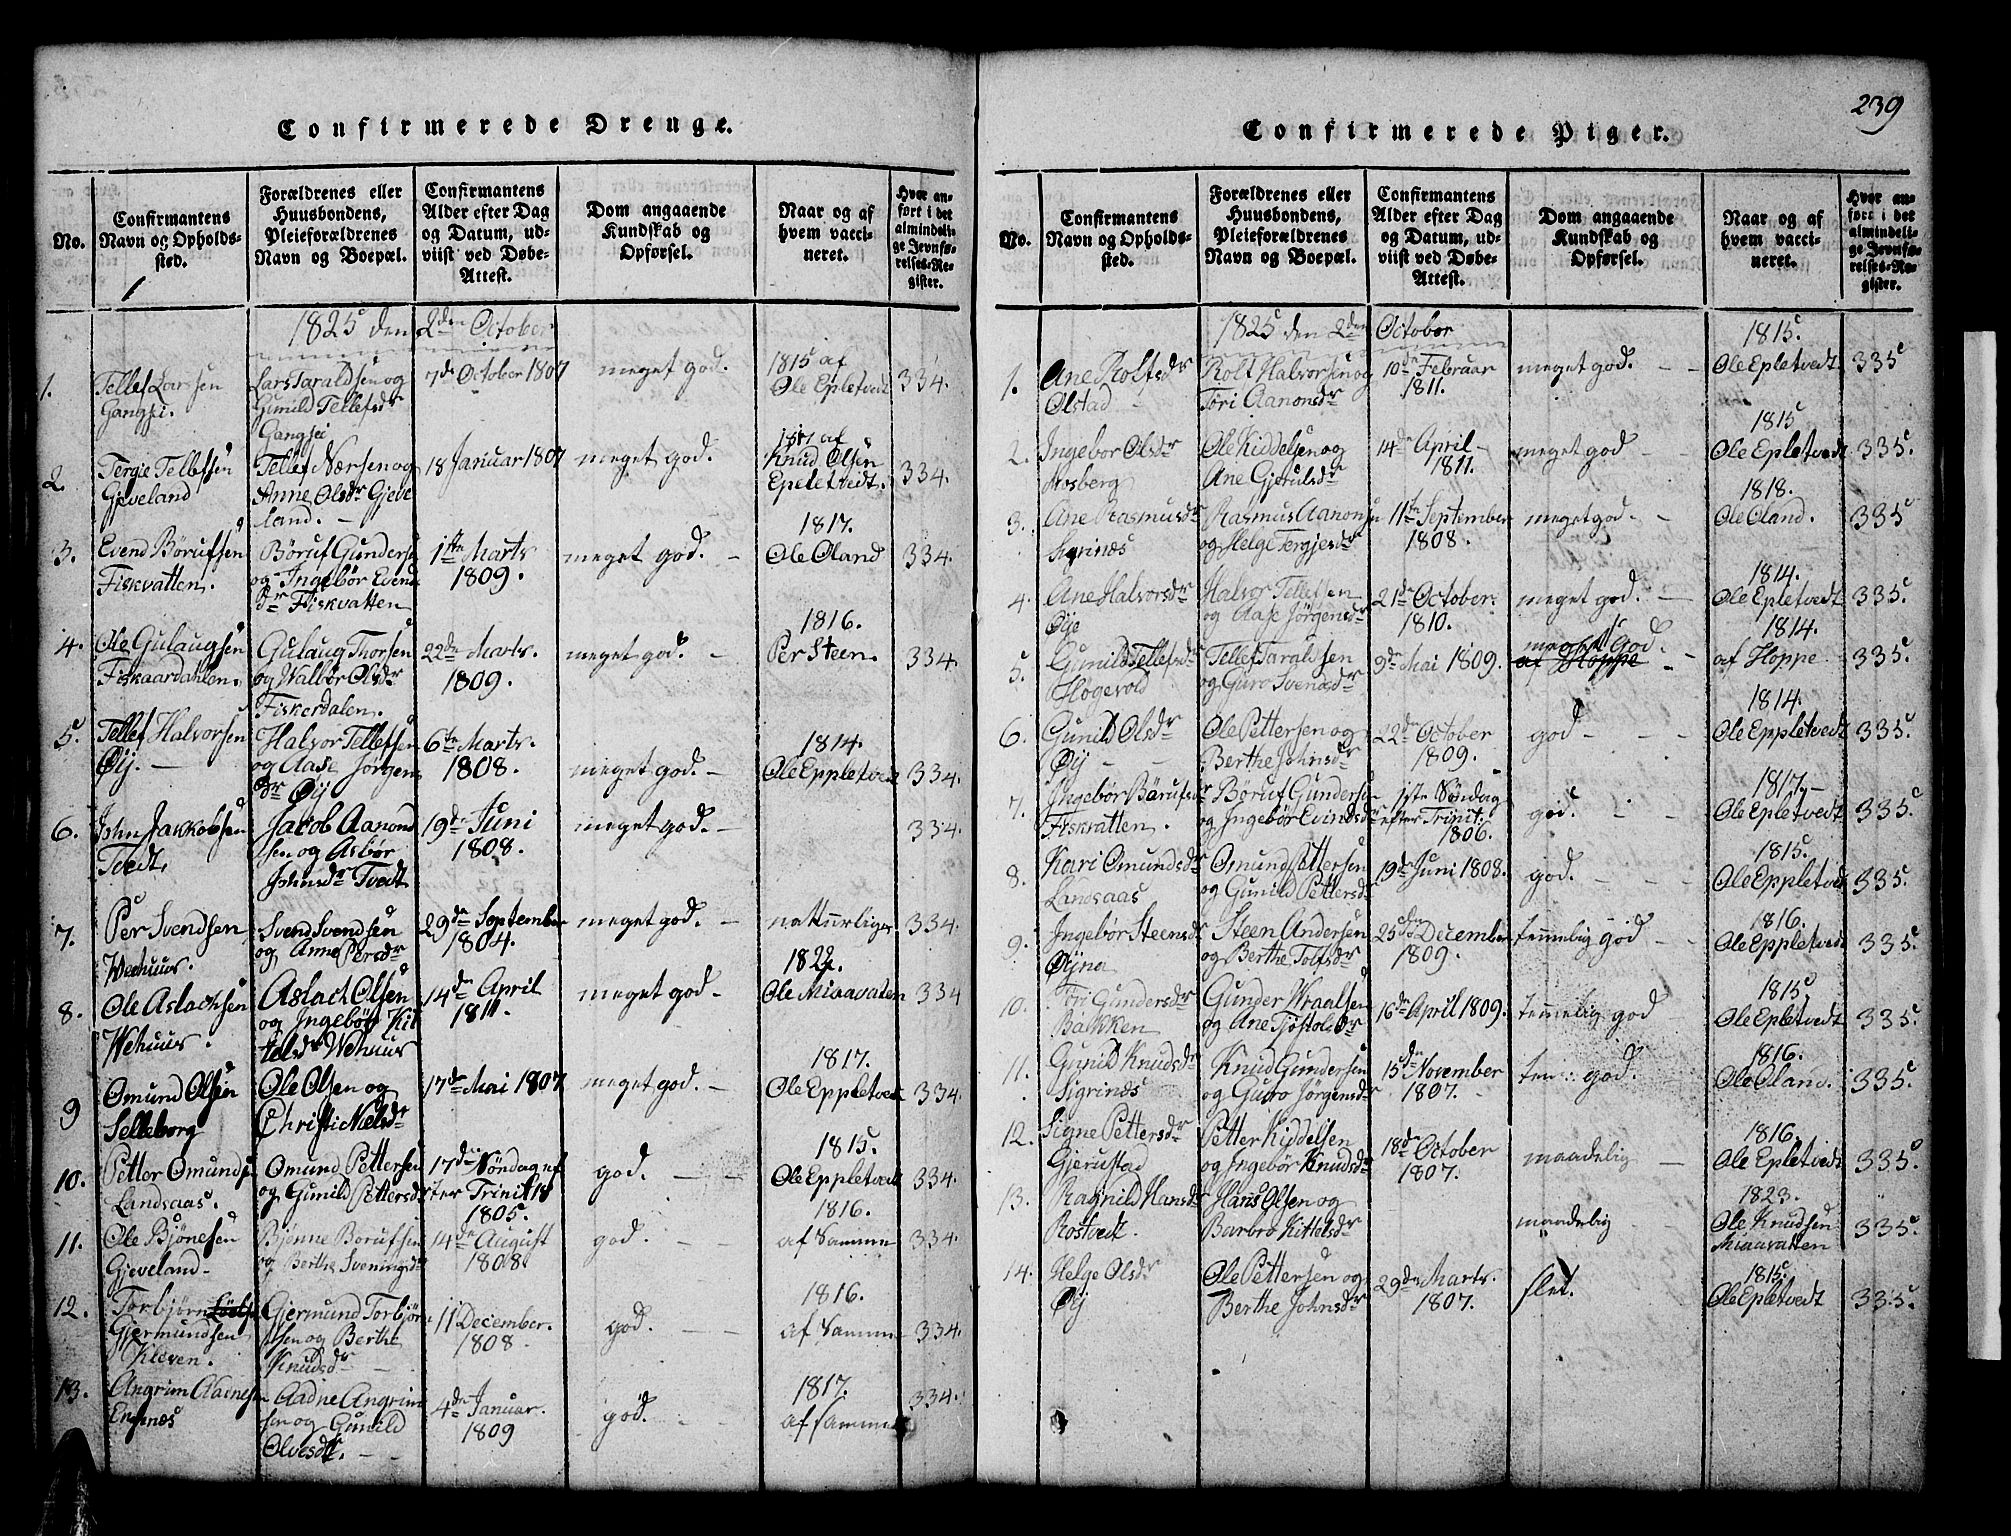 239
Confirmerede Drenge.
No.
Confirmantens
Navn og Opholds-
sted.
Forældrenes eller
Huusbondens,
Pleieforældrenes
Navn og Boepæl.
Confirmantens
Alder efter Dag
og Datum, ud-
viist ved Døbe-
Attest.
Dom angaaende
Kundskab og
Opførsel.
Naar og af
hvem vacci-
neret.
Hvor an-
ført i det
almindeli-
ge Jevnfø-
relses-Re-
gister.
1825 den 2den October
1.
Tellef Larsen
Gangsei.
Lars Taraldsen og
Gunild Tellefsdr
Gangsei
7de October 1807
meget god.
1815 af
Ole Epletvedt
334.
2.
Tergie Tellefsen
Gjeveland
Tellef Nersen og
Anne Olsdr Gjeve
land.
18 Januar 1807
meget god.
1817 af
Knud Olsen
Epeletvedt.
334.
3.
Evend Börufsen
Fiskvatten.
Böruf Gunders
og Ingebör Evends
dr Fiskvatten
1ste Marts
1809.
meget god. -
1817.
Ole Öland
334.
4.
Ole Gulaugsen
Fiskaardahlen.
Gulaug Thorsen
og Walbör Olsdr
Fiskerdalen.
22de Marts.
1809.
meget god. -
1816.
Per Steen.
334.
5.
Tellef Halvorsen
Öij. -
Halvor Tellefsen
og Aase Jörgens
dr Öij
6te Marts.
1808.
meget god. -
1814.
Ole Eppletvedt
334.
6.
John Jakkobsen
Tvedt.
Jacob Aanond
sen og Asbör
Johnsdr Tvedt
19de Juni
1808.
meget god. -
334.
7.
Per Svendsen
Wehuus.
Svend Svendsen
og Anne Persdr
29de September
1804.
meget god. -
natturlige
334.
8.
Ole Aslachsen
Wehuus.
Aslach Olsen
og Ingebör Kit
telsdr Wehuus
14de April
1811.
meget god -
1822.
Ole Miaavaten
334
9
Omund Olsen
Selleborg
Ole Olsen og
Christi Nielsdr
17de Mai 1807
meget god. -
1817.
Ole Eppletvedt
334.
10.
Petter Omunds
Landsaas.
Omund Pettersen
og Gunild Pettersdr
17de Söndag ef
ter Trinit
1805.
god. - -
1815.
Ole Eppletvedt
334.
11.
Ole Bjönesen
Gjeveland-
Bjönne Borufsen
og Berthe Sveningsdr
14de August
1808
god. - -
1816.
af Samme
334.
12.
Torbjörn
Gjermundsen
Kleven.
Gjermund Torbjör
sen og Berthe
Knudsdr
11 December.
1808.
god. - -
1816.
af Samme
334.
13.
Angrim Aadnesen
Ensnes
Aadne Angrim
sen og Gunild
Olvesdr. - -
4de Januar.
1809
god. - -
1817.
af samme
334.
Confirmerede Piger.
No.
Confirmantens
Navn og Opholds-
sted.
Forældrenes eller
Huusbondens,
Pleieforældrenes
Navn og Boepæl.
Confirmantens
Alder efter Dag
og Datum, ud-
viist ved Døbe-
Attest.
Dom angaaende
Kundskab og
Opførsel.
Naar og af
hvem vacci-
neret.
Hvor an-
ført i det
almindeli-
ge Jevnfø-
relses-Re-
gister.
1825 den 2den October
1.
Ane Rolfsdr
Ölstad -
Rolf Halvorsen og
Töri Aanonsdr
10de Februar
1811.
meget god. - -
1815.
Ole Epletvedt
335
2.
Ingebor Olsdr
Mosberg
Ole Kiddelsen og
Ane Gjerulsdr
14de April -
1811.
meget god - -
1815
Ole Epletvedt
335.
3.
Ane Rasmusdr
Sigrinæs
Rasmus Aanonsen
og Helge Tergjesdr
11te September
1808.
meget god. -
1818.
Ole Öland.
335
4.
Ane Halvorsdr
Öije
Halvor Tellefsen
og Aase Jörgensdr
21de October.
1810.
meget god. -
1814.
Ole Epletvedt
335.
5.
Gunild Tellefsdr
Högevold
Tellef Taraldsen
og Guro Svendsdr
9de Mai 1809.
meget God.
af Hoppe
1814.
af Hoppe
335.
6.
Gunild Olsdr
Öij - -
Ole Pettersen og
Berthe Johnsdr
22de October
1809.
god - - -
1814.
Ole Eppletvedt
335.
7.
Ingebör Bärufsdr
Fiskvatten.
Böruf Gundersen
og Ingebör Evindsdr
1ste Söndag
efter Trinit.
1806.
god. - -
1817. -
Ole Epletvedt
335.
8.
Kari Omundsdr
Landsaas
Omund Pettersen
og Gunild Pettersdr
19de Juni 1808.
god. - - -
1815.
Ole Eppletvedt
335.
9.
Ingebör Steensdr
Öijna
Steen Andersen
og Berthe Tolfsdr
25de December
1809.
temmelig god -
1816.
Ole Eppletvedt
335.
10.
Töri Gundersdr
Bakken
Gunder Wraalsen
og Ane Tjöstolsdr
16de April 1809.
temmelig god
1815
Ole Epletvedt
335.
11.
Gunild Knudsdr
Sigrinæs
Knud Gundersen
og Guro Jörgensdr
15de November
1807.
tem: god.
1816.
Ole Öland.
335.
12.
Signe Pettersdr
Gjerustad
Petter Kiddelsen
og Ingebör Knudsdr
18de October
1807.
maadelig -
1816.
Ole Epletvedt
335.
13.
Ragnild Hansdr
Rostvedt.
Hans Olsen og
Barbro Kittelsdr
maadelig -
1823.
Ole Knudsen
Miaavatten
335.
14.
Helge Olsdr
Öij
Ole Pettersen og
Berthe Johnsdr
29de Marts.
1807.
slet.
1815.
Ole Epletvedt
335.